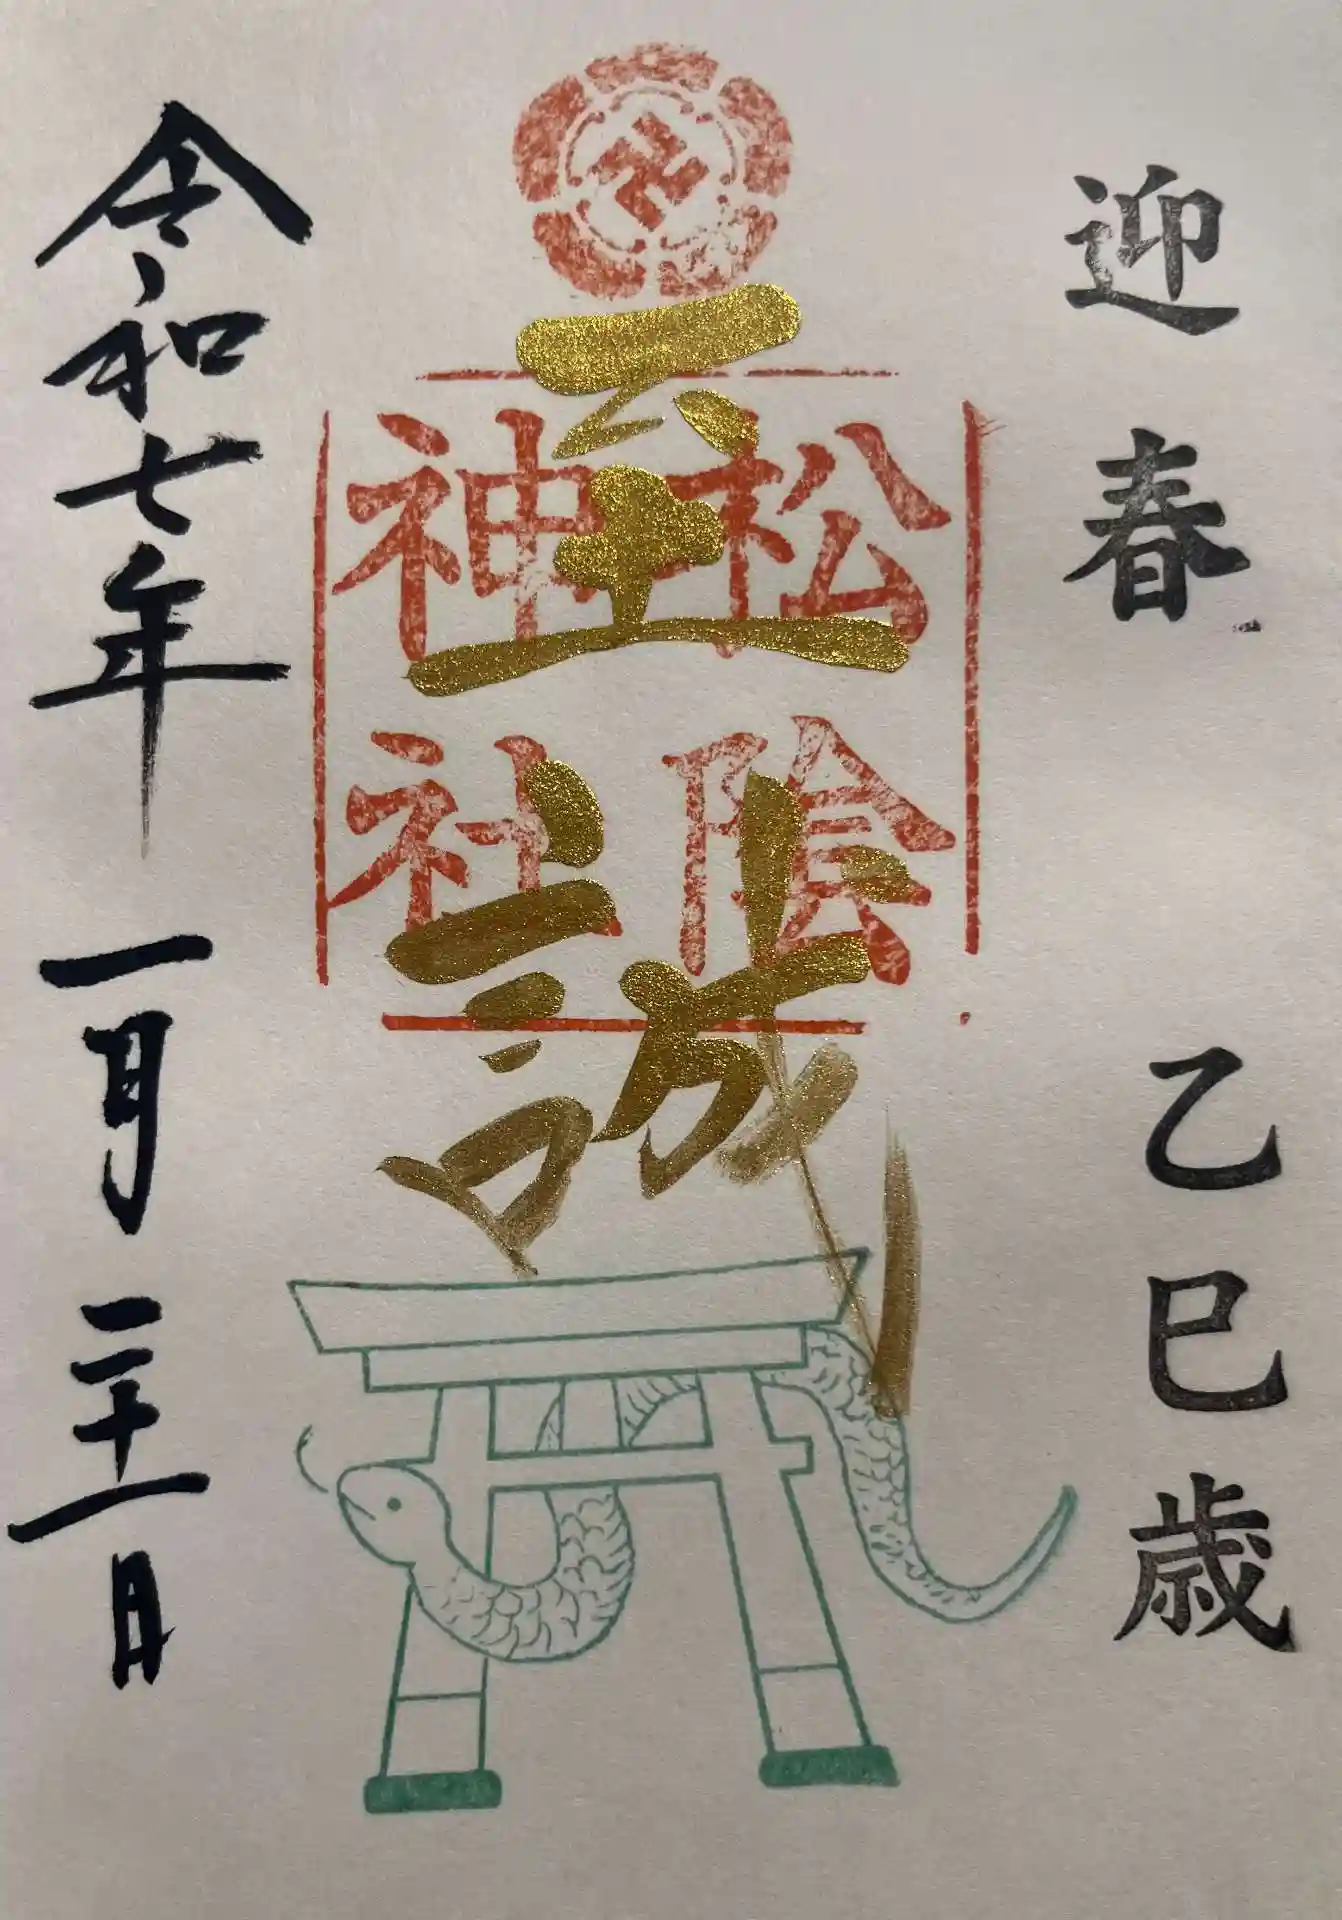 迎春 乙巳歳
至誠
松陰
神社
令和七年一月二十一日